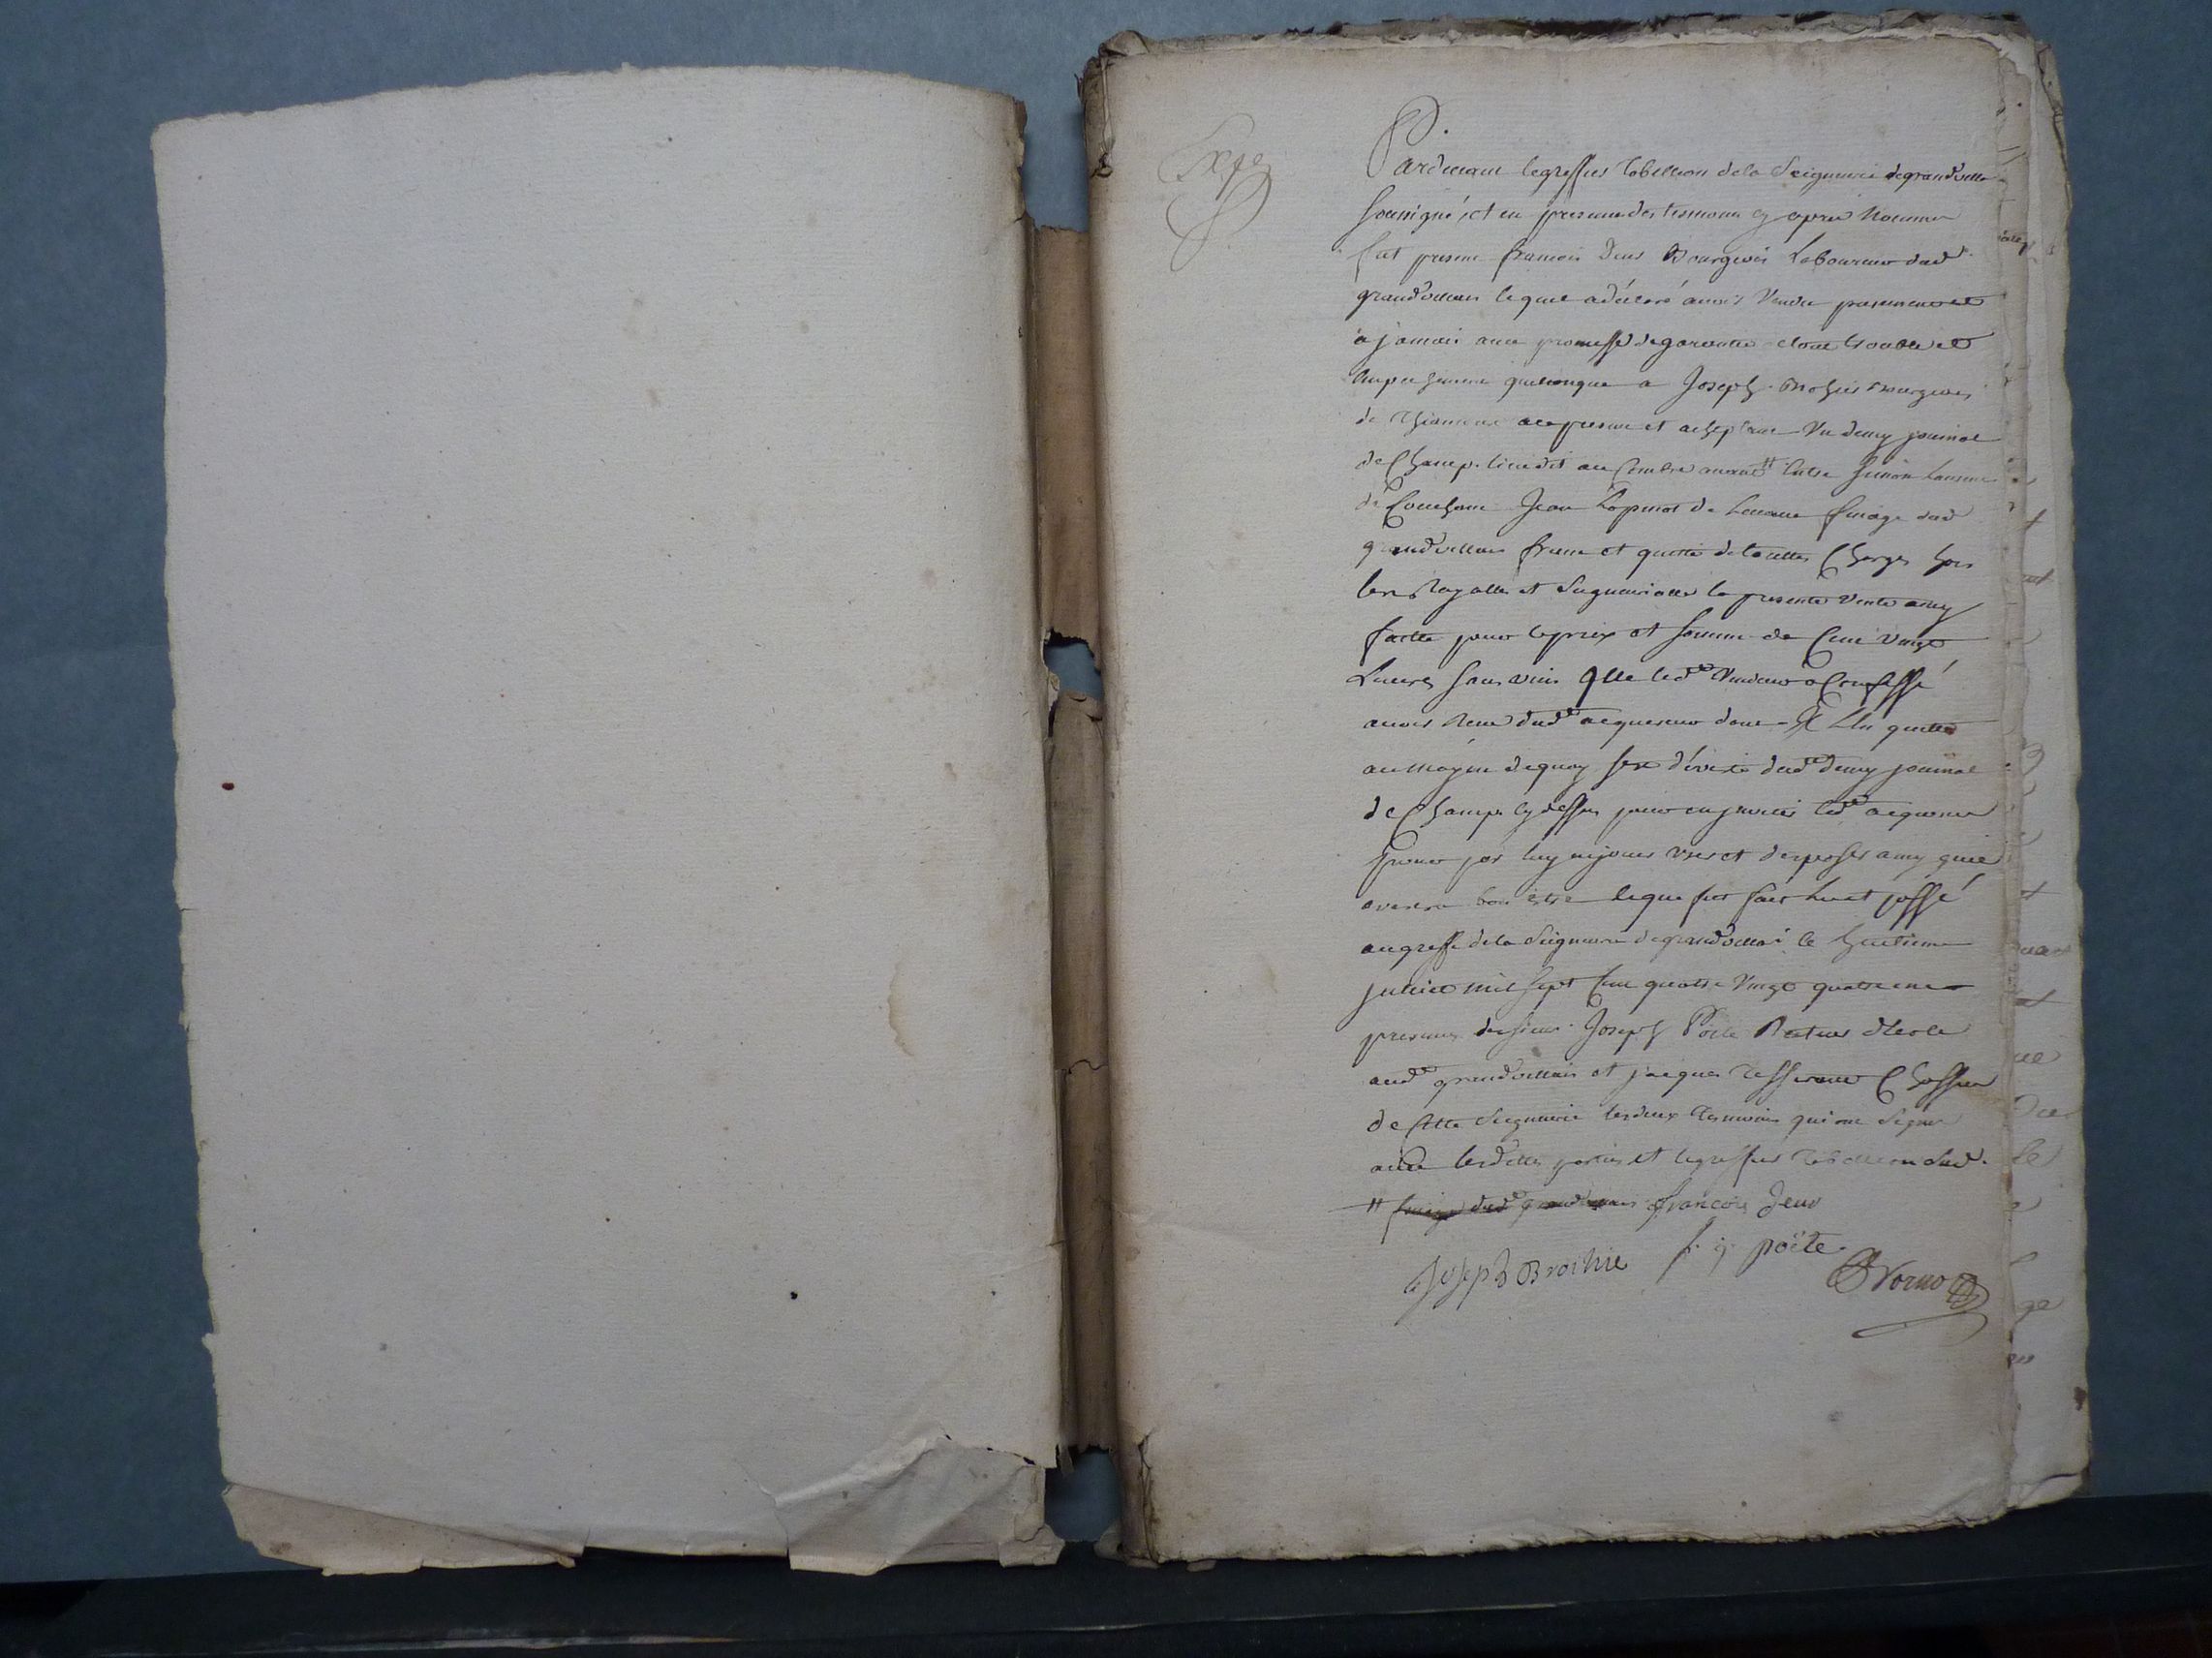 Expe
Pardevant le greffier tabellion de la Seigneurie de grandvilla
soussigné, et en presence des tesmoins cy apres nommes
fut present francois Deus Bourgeois Laboureur dud.
grandvillars lequel a déclaré avoir vendu purement et
a jamais avec promesse de garantie de tout trouble et
empechemens quelconque a Joseph Brochié bourgeois
de Thiancour ace present et acheptant Un demy journal
de Champ lieudit au Combre avant # entre Simon
de Jean de finage dud
grandvillars franc et quitte de touttes Charges hors
les Royalles et Seigneurialles la presente vente ainsy
faitte pour le prix et somme de Cent vingt
Livres sans vins Qlle led.t Vendeur a Confessé
avoir Receu dud.t acquereur dont Il l'en quitte
au moyen de quoy sere dévéti dud.t demy journal
de Champ cy dessus pour en invetir led.t acquereur
pour par luy en jouir user et disposer ainsy quil
avisera bon être le que fut fait lu et passé
au greffe de la Seigneurie de grandvillars le huitieme
juillet mil sept Cent quatre Vingt quatre en
presence de sieur Joseph Poite Recteur d'école
aud.t grandvillars et jacque Chasseur
de Cette Seigneurie les deux tesmoins qui ont Signé
avec lesdittes parties et le greffier tabellion dud.
# finage dud.t grandvillars francois Deus
Joseph Brochie f. j. poite.
Norno